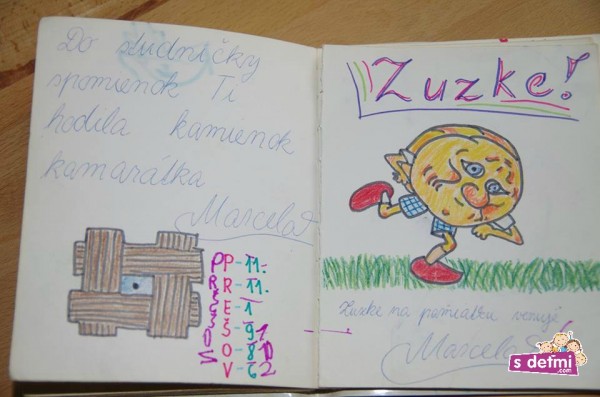 Do studničky
spomienok Ti
hodila kamienok
kamarátka
Marcela
P P-11.
R R-11.
E E-1
Š Š-9 1
O O-8 1
V V-6 2
Zuzke!
Zuzke na pamiatku venuje
Marcela
s detmi
.com